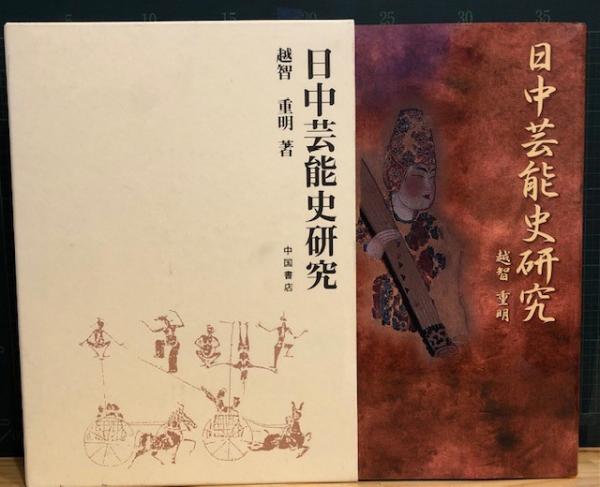 5
10
25
30
35
日中芸能史研究
越智 重明 著
中国書店
日中芸能史研究
越智 重明